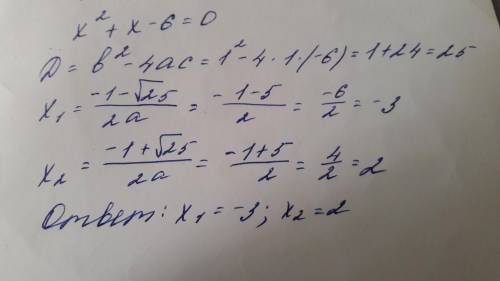 x² + x - 6 = 0
D = b² - 4ac = 1² - 4 · 1 · (-6) = 1 + 24 = 25
x₁ = (-1 - √25)/(2a) = (-1 - 5)/2 = -6/2 = -3
x₂ = (-1 + √25)/(2a) = (-1 + 5)/2 = 4/2 = 2
Ответ: x₁ = -3; x₂ = 2